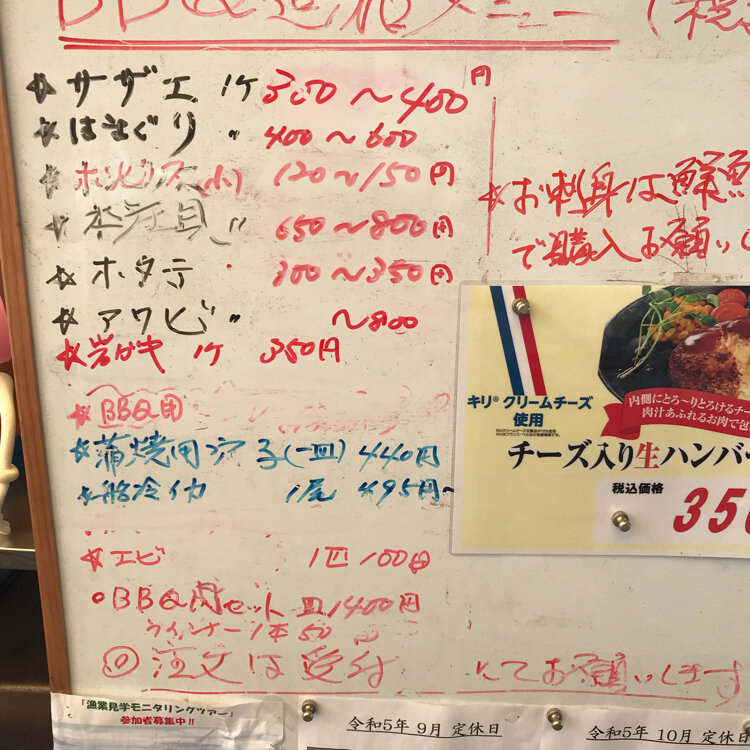 BBQ追加メニュー(税
☆サザエ 1ケ 300〜400円
☆はまぐり 〃 400〜600
☆ホンビノス(小) 120〜150円
☆本ミル貝 〃 650〜800円
☆ホタテ 〃 300〜350円
☆アワビ 〃 〜800
☆岩がキ 1ケ 350円
☆お刺身は鮮魚
で購入お願いし
☆BBQ用
☆蒲焼用穴子(一皿) 440円
☆船冷イカ 1尾 495円〜
☆エビ 1匹100円
○BBQ肉セット 皿1400円
ウインナー1本50円
◎注文は受付にてお願いします
キリ® クリームチーズ
使用
内側にとろ〜りとろけるチー
肉汁あふれるお肉で包
チーズ入り生ハンバー
税込価格
350
「漁業見学モニタリングツアー」
参加者募集中!!
令和5年 9月 定休日
令和5年 10月 定休日